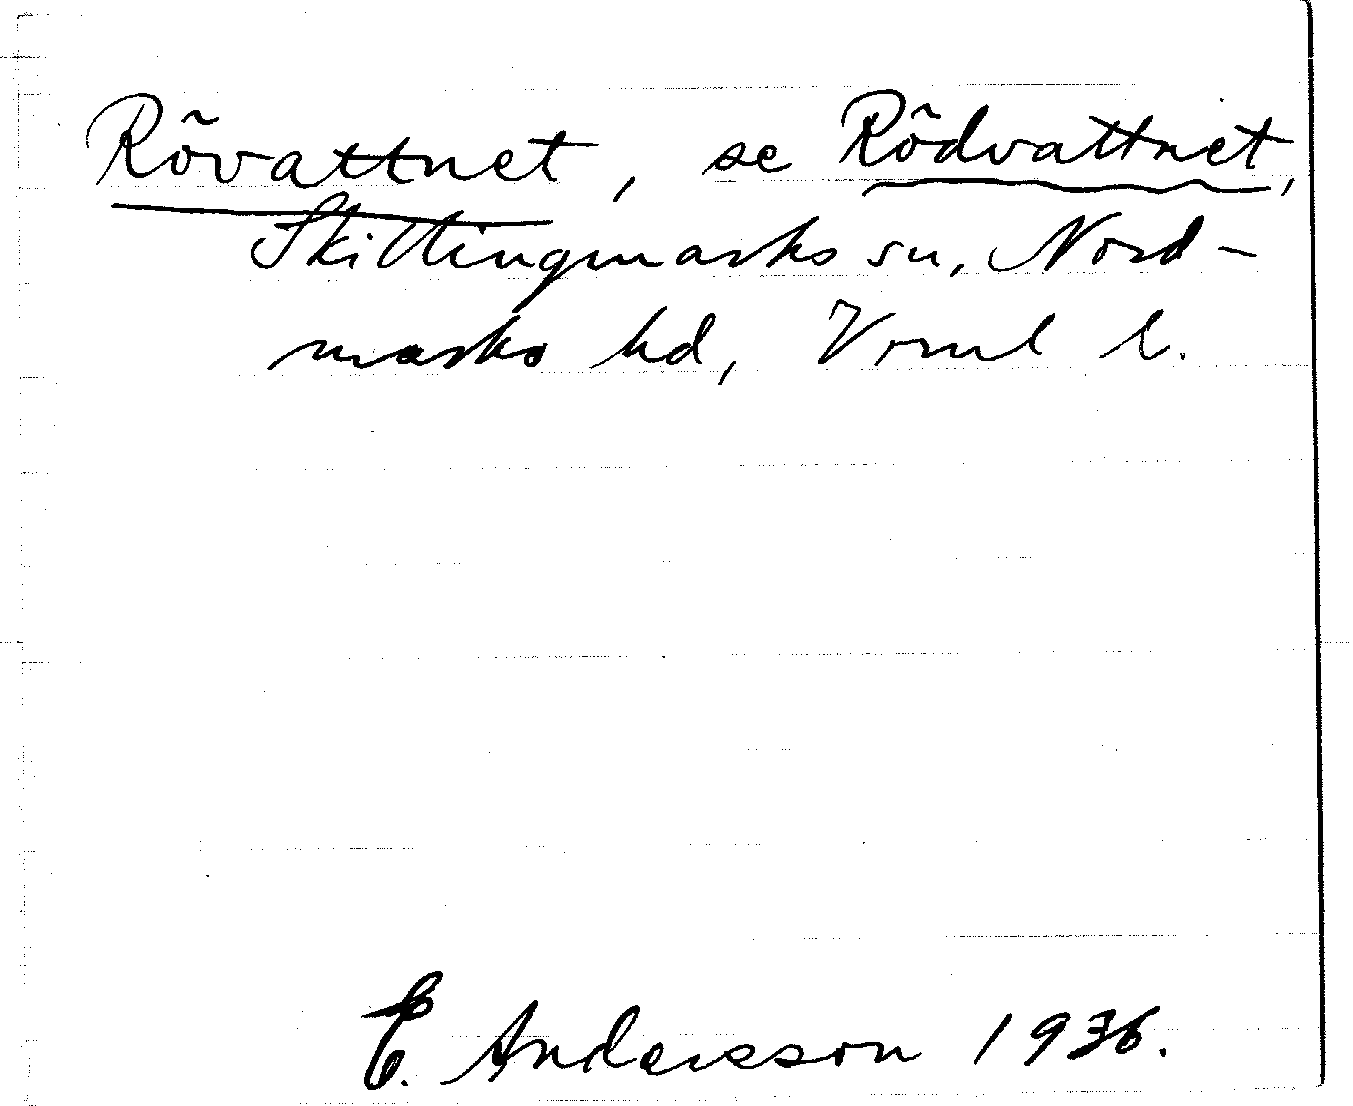 Rõvattnet, se Rõdvattnet,
Skillingmarks sn, Nord-
marks hd, Vrml l.
E. Andersson 1936.